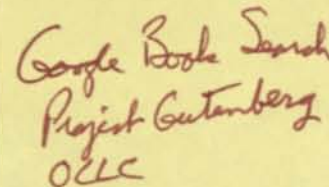 Google Book Search
Project Gutenberg
OCLC